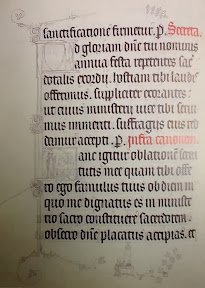 sanctificatione firmetur. P. Secreta.
d gloriam dñe tui nominis
annua festa repetentes sac
dotalis exordii. hostiam tibi laudis
offerimus. suppliciter exorantes:
ut cuius ministerii vice tibi servi
mus immeriti. suffragiis eius red
damur accepti. P. infra canonem.
anc igitur oblationẽ servi
tutis mee quam tibi offe
ro ego famulus tuus ob diem in
quo me dignatus es in ministe
rio sacro constituere sacerdotem.
obsecro dñe placatus accipias. et